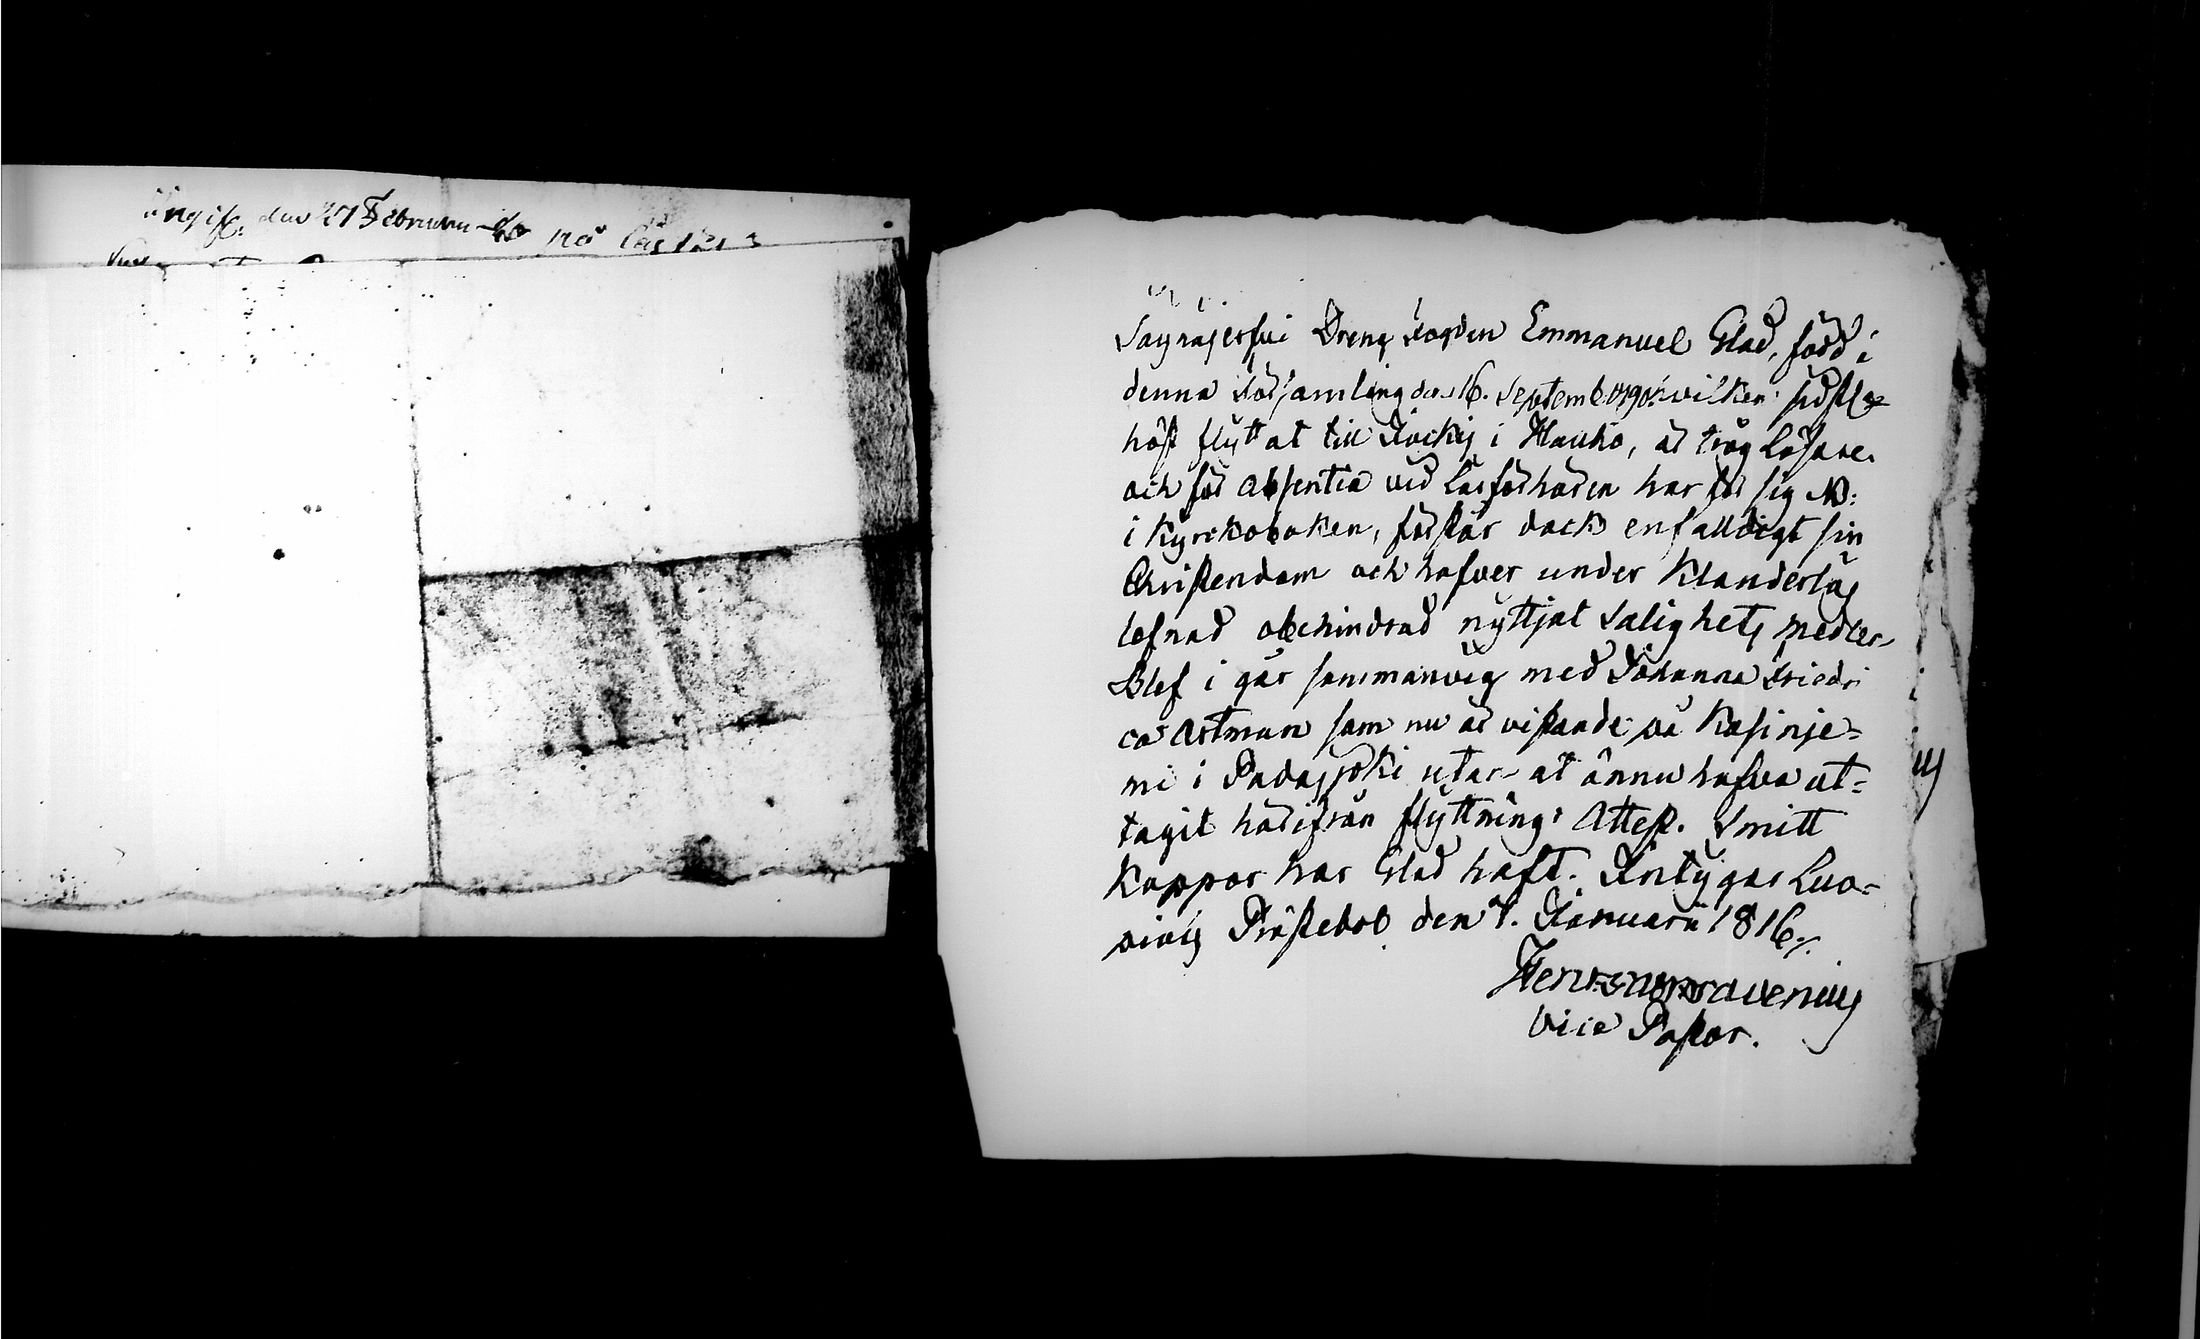 Ängift. den 27 Februari
Sagnäjerfvi Dreng Fogden Emmanuel Glad, född i
denna Församling den 16. September 1790. hvilken sidstl.
höst flyttat till Kockis i Hauho, är trög Läsare
och för absentia vid Läsförhören har för sig NB:
i Kyrckoboken, förstår dock enfalldigt sin
Christendom och hafver under Klanderlös
lefnad obehindrad nyttjat Salighets medlen
Blef i går sammanvigd med Johanna Friedri
ca Artman som nu är vistande på Kasinje=
mi i Padasjoki utan at ännu hafva ut=
tagit härifrån flyttnings Attest. Smitt
Koppor har Glad haft. Intygar Luo=
piois Prästebol den 1. Januarii 1816./.
Vice Pastor.